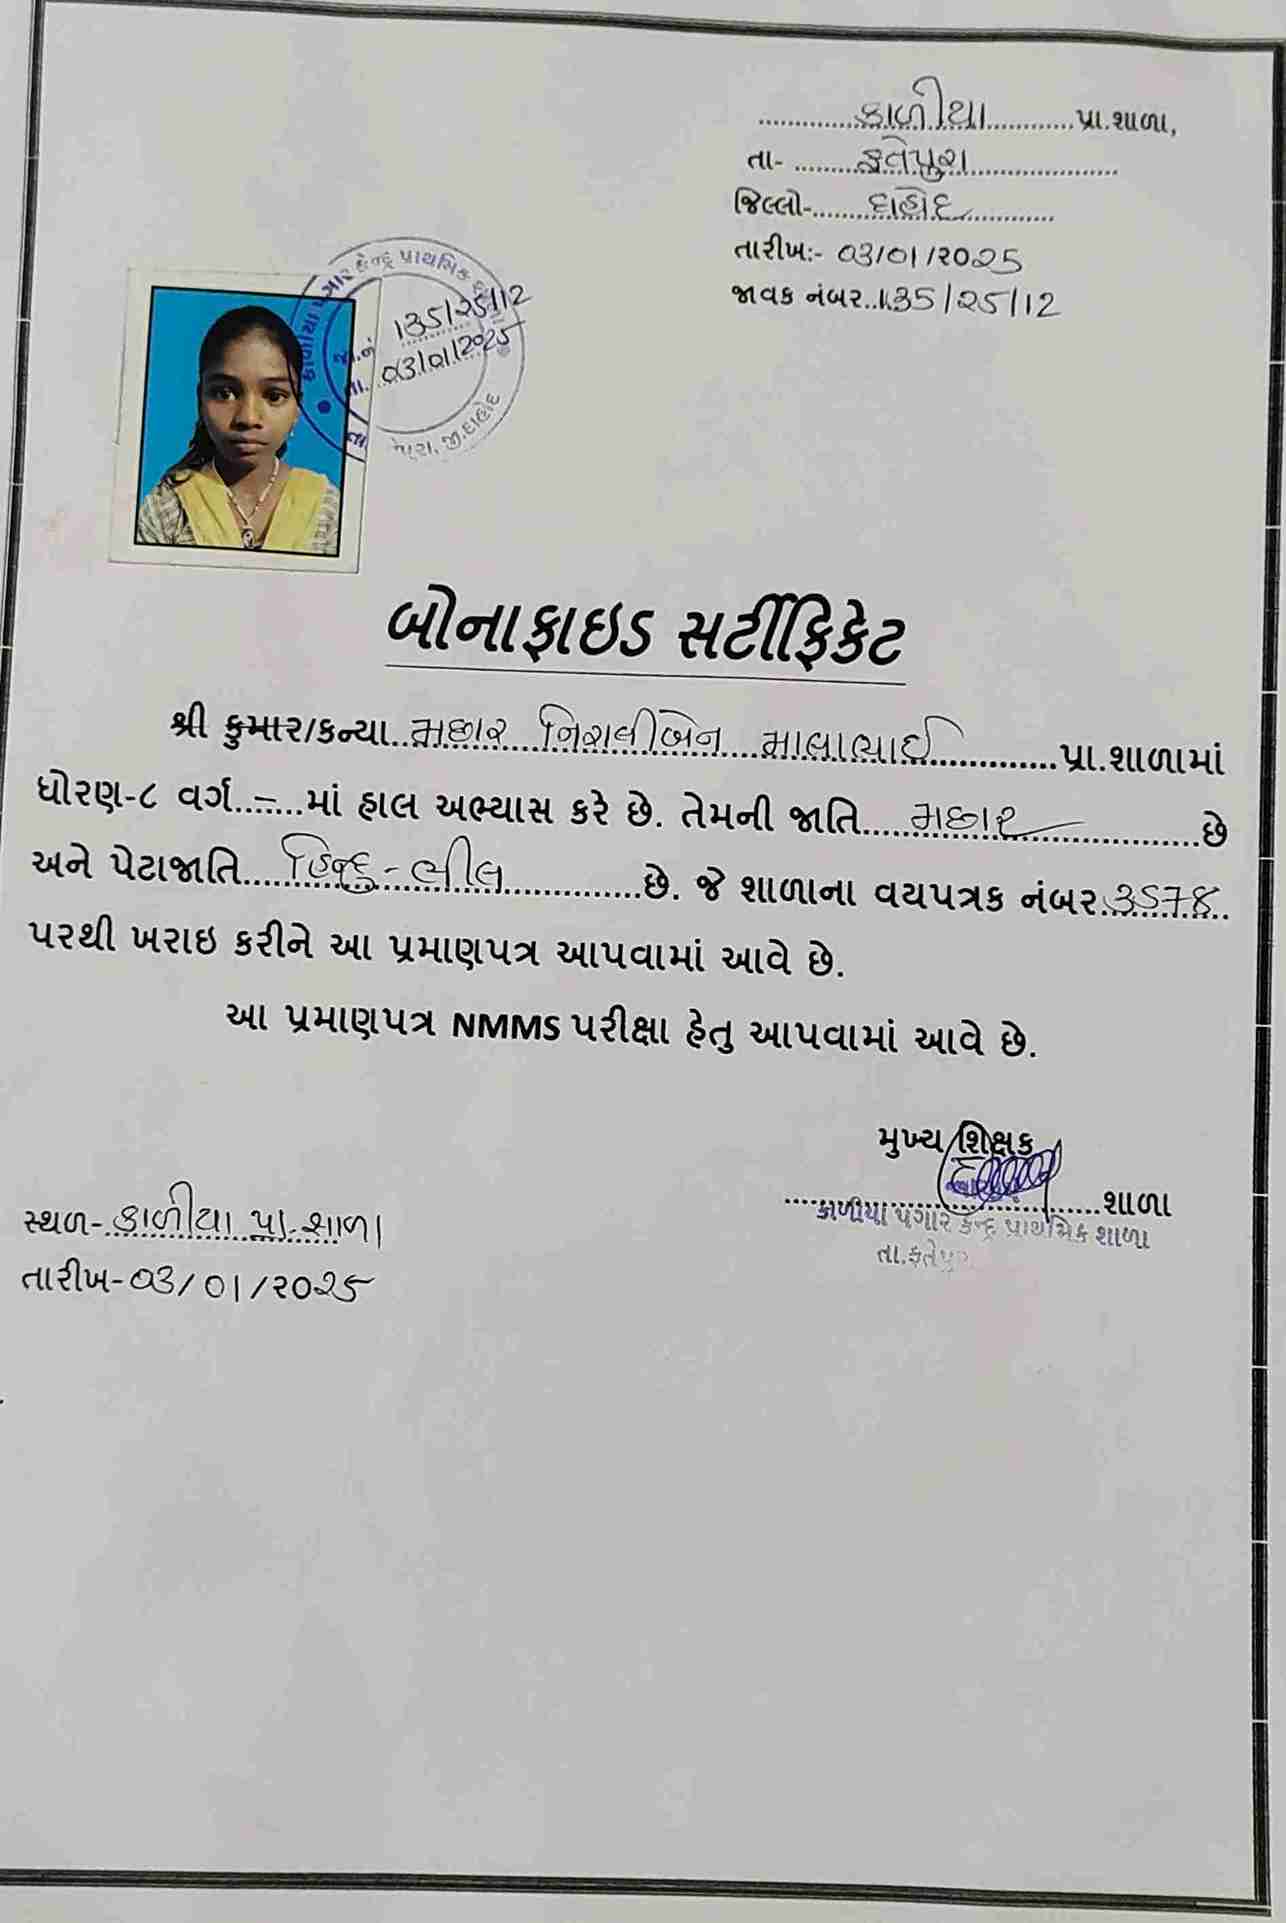 કાળીયા પ્રા.શાળા,
તા- ફતેપુરા
જિલ્લો- દાહોદ
તારીખ:- ૦૩/૦૧/૨૦૨૫
જાવક નંબર..135/૨૫/12
કાળીયા પગાર કેન્દ્ર પ્રાથમિક
જા.નં 135/૨૫/12
તા. ૦૩/૦૧/2025
જી.દાહોદ
બોનાફાઇડ સર્ટીફિકેટ
શ્રી કુમાર/કન્યા મછાર નિરાલીબેન માલાભાઈ પ્રા.શાળામાં
ધોરણ-૮ વર્ગ..–..માં હાલ અભ્યાસ કરે છે. તેમની જાતિ મછાર છે
અને પેટાજાતિ હિન્દુ-ભીલ છે. જે શાળાના વયપત્રક નંબર ૩૫૭૪
પરથી ખરાઇ કરીને આ પ્રમાણપત્ર આપવામાં આવે છે.
આ પ્રમાણપત્ર NMMS પરીક્ષા હેતુ આપવામાં આવે છે.
મુખ્ય શિક્ષક
શાળા
કાળીયા પગાર કેન્દ્ર પ્રાથમિક શાળા
સ્થળ- કાળીયા પ્રા-શાળા
તારીખ-૦૩/૦૧/૨૦૨૫